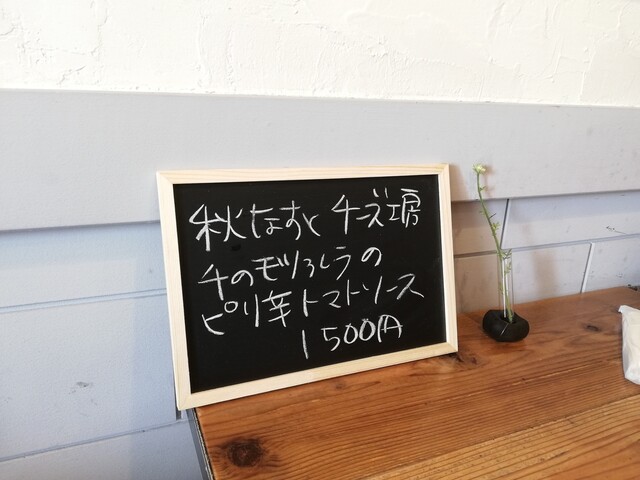 秋なすと チーズ工房
千のモツァレラの
ピリ辛トマトソース
1500円